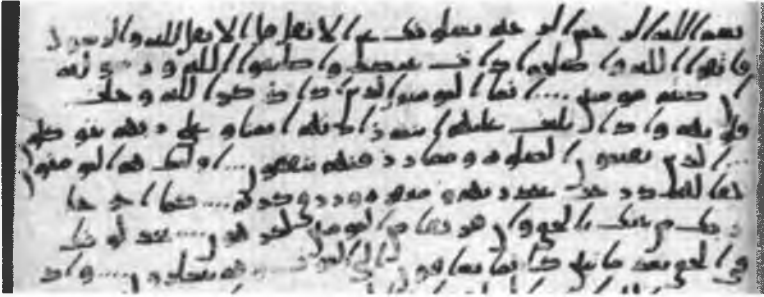 بسم الله الرحمن الرحيم يسلونك عن الانفل قل الانفل لله والرسول
فاتقوا الله واصلحوا ذات بينكم واطيعوا الله ورسوله
ان كنتم مومنين انما المومنون الذين اذا ذكر الله وجلت
قلوبهم واذا تليت عليهم ايته زادتهم ايمنا وعلى ربهم يتوكلو
ن الذين يقيمون الصلوه ومما رزقنهم ينفقون اولئك هم المومنون
حقا لهم درجت عند ربهم ومغفره ورزق كريم كما اخرجك
ربك من بيتك بالحق وان فريقا من المومنين لكرهون يجدلونك
في الحق بعد ما تبين كانما يساقون الى الموت وهم ينظرون واذ